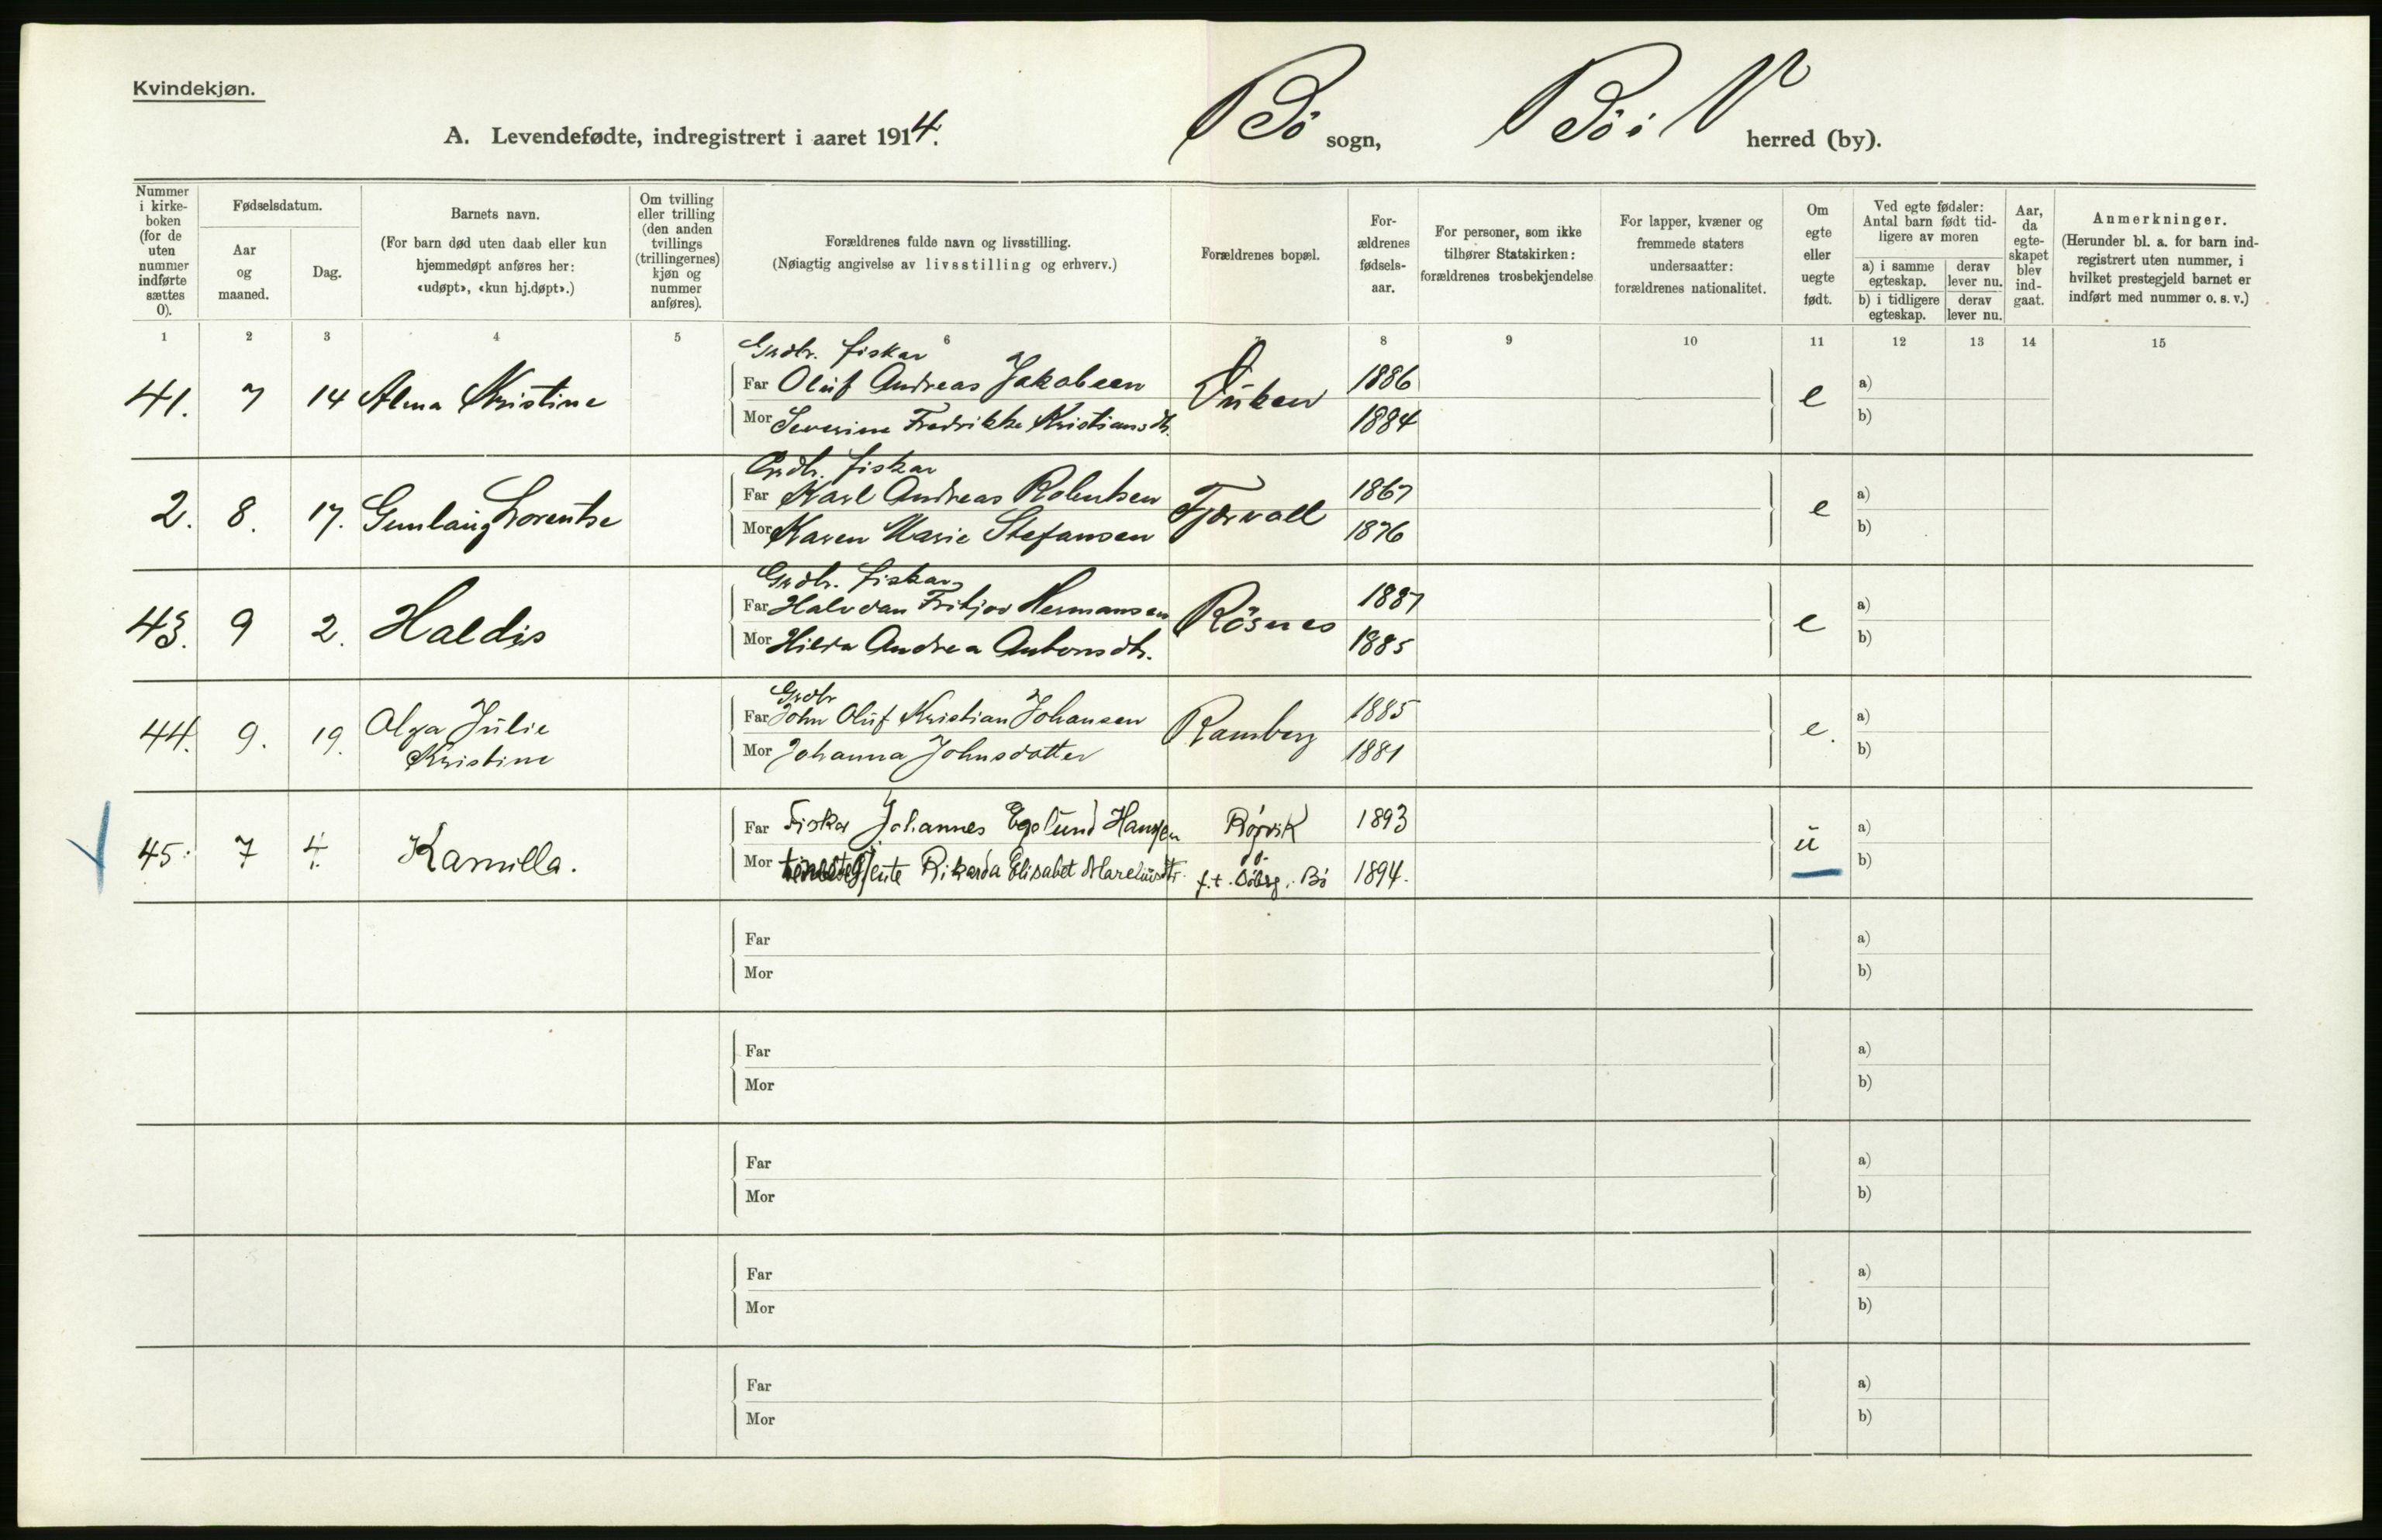 Kvindekjøn.
A. Levendefødte, indregistrert i aaret 1914.
Bö sogn, Bö i V herred (by).
Nummer i kirke-boken (for de uten nummer indførte sættes 0).
Fødselsdatum.
Aar og maaned.
Dag.
Barnets navn.
(For barn død uten daab eller kun hjemmedøpt anføres her: «udøpt», «kun hj.døpt».)
Om tvilling eller trilling (den anden tvillings (trillingernes) kjøn og nummer anføres).
Forældrenes fulde navn og livsstilling.
(Nøiagtig angivelse av livsstilling og erhverv.)
Forældrenes bopæl.
For-ældrenes fødsels-aar.
For personer, som ikke tilhører Statskirken: forældrenes trosbekjendelse
For lapper, kvæner og fremmede staters undersaatter: forældrenes nationalitet.
Om egte eller uegte født.
Ved egte fødsler: Antal barn født tid-ligere av moren
a) i samme egteskap.
derav lever nu.
b) i tidligere egteskap.
derav lever nu.
Aar, da egte-skapet blev ind-gaat.
Anmerkninger.
(Herunder bl. a. for barn ind-registrert uten nummer, i hvilket prestegjeld barnet er indført med nummer o. s. v.)
1 2 3 4 5 6 7 8 9 10 11 12 13 14 15
Grdbr. fisker
41. 7 14 Alma Kristine Far Oluf Andreas Jakobsen 1886 e a)
Mor Severine Fredrikke Kristiansdt. 1884 b)
Grdbr. fisker
2. 8. 17. Gunlaug Lorentse Far Karl Andreas Robertsen Fjærvoll 1867 e a)
Mor Karen Marie Stefansen 1876 b)
Grdbr. fisker
43. 9 2. Haldis Far Halvdan Fritjov Hermansen Rösnes 1887 e a)
Mor Hilda Andrea Antonsdtr. 1885 b)
Grdbr
44. 9. 19. Olga Julie Kristine Far John Oluf Kristian Johansen Ramberg 1885 e. a)
Mor Johanna Johnsdatter 1881 b)
45. 7 4. Kamilla. Far Fisker Johannes Egelund Hansen Rørvik 1893 u a)
Mor Rikarda Elisabet Mareliusdtr. f.t. Bö 1894. b)
Far a)
Mor b)
Far a)
Mor b)
Far a)
Mor b)
Far a)
Mor b)
Far a)
Mor b)